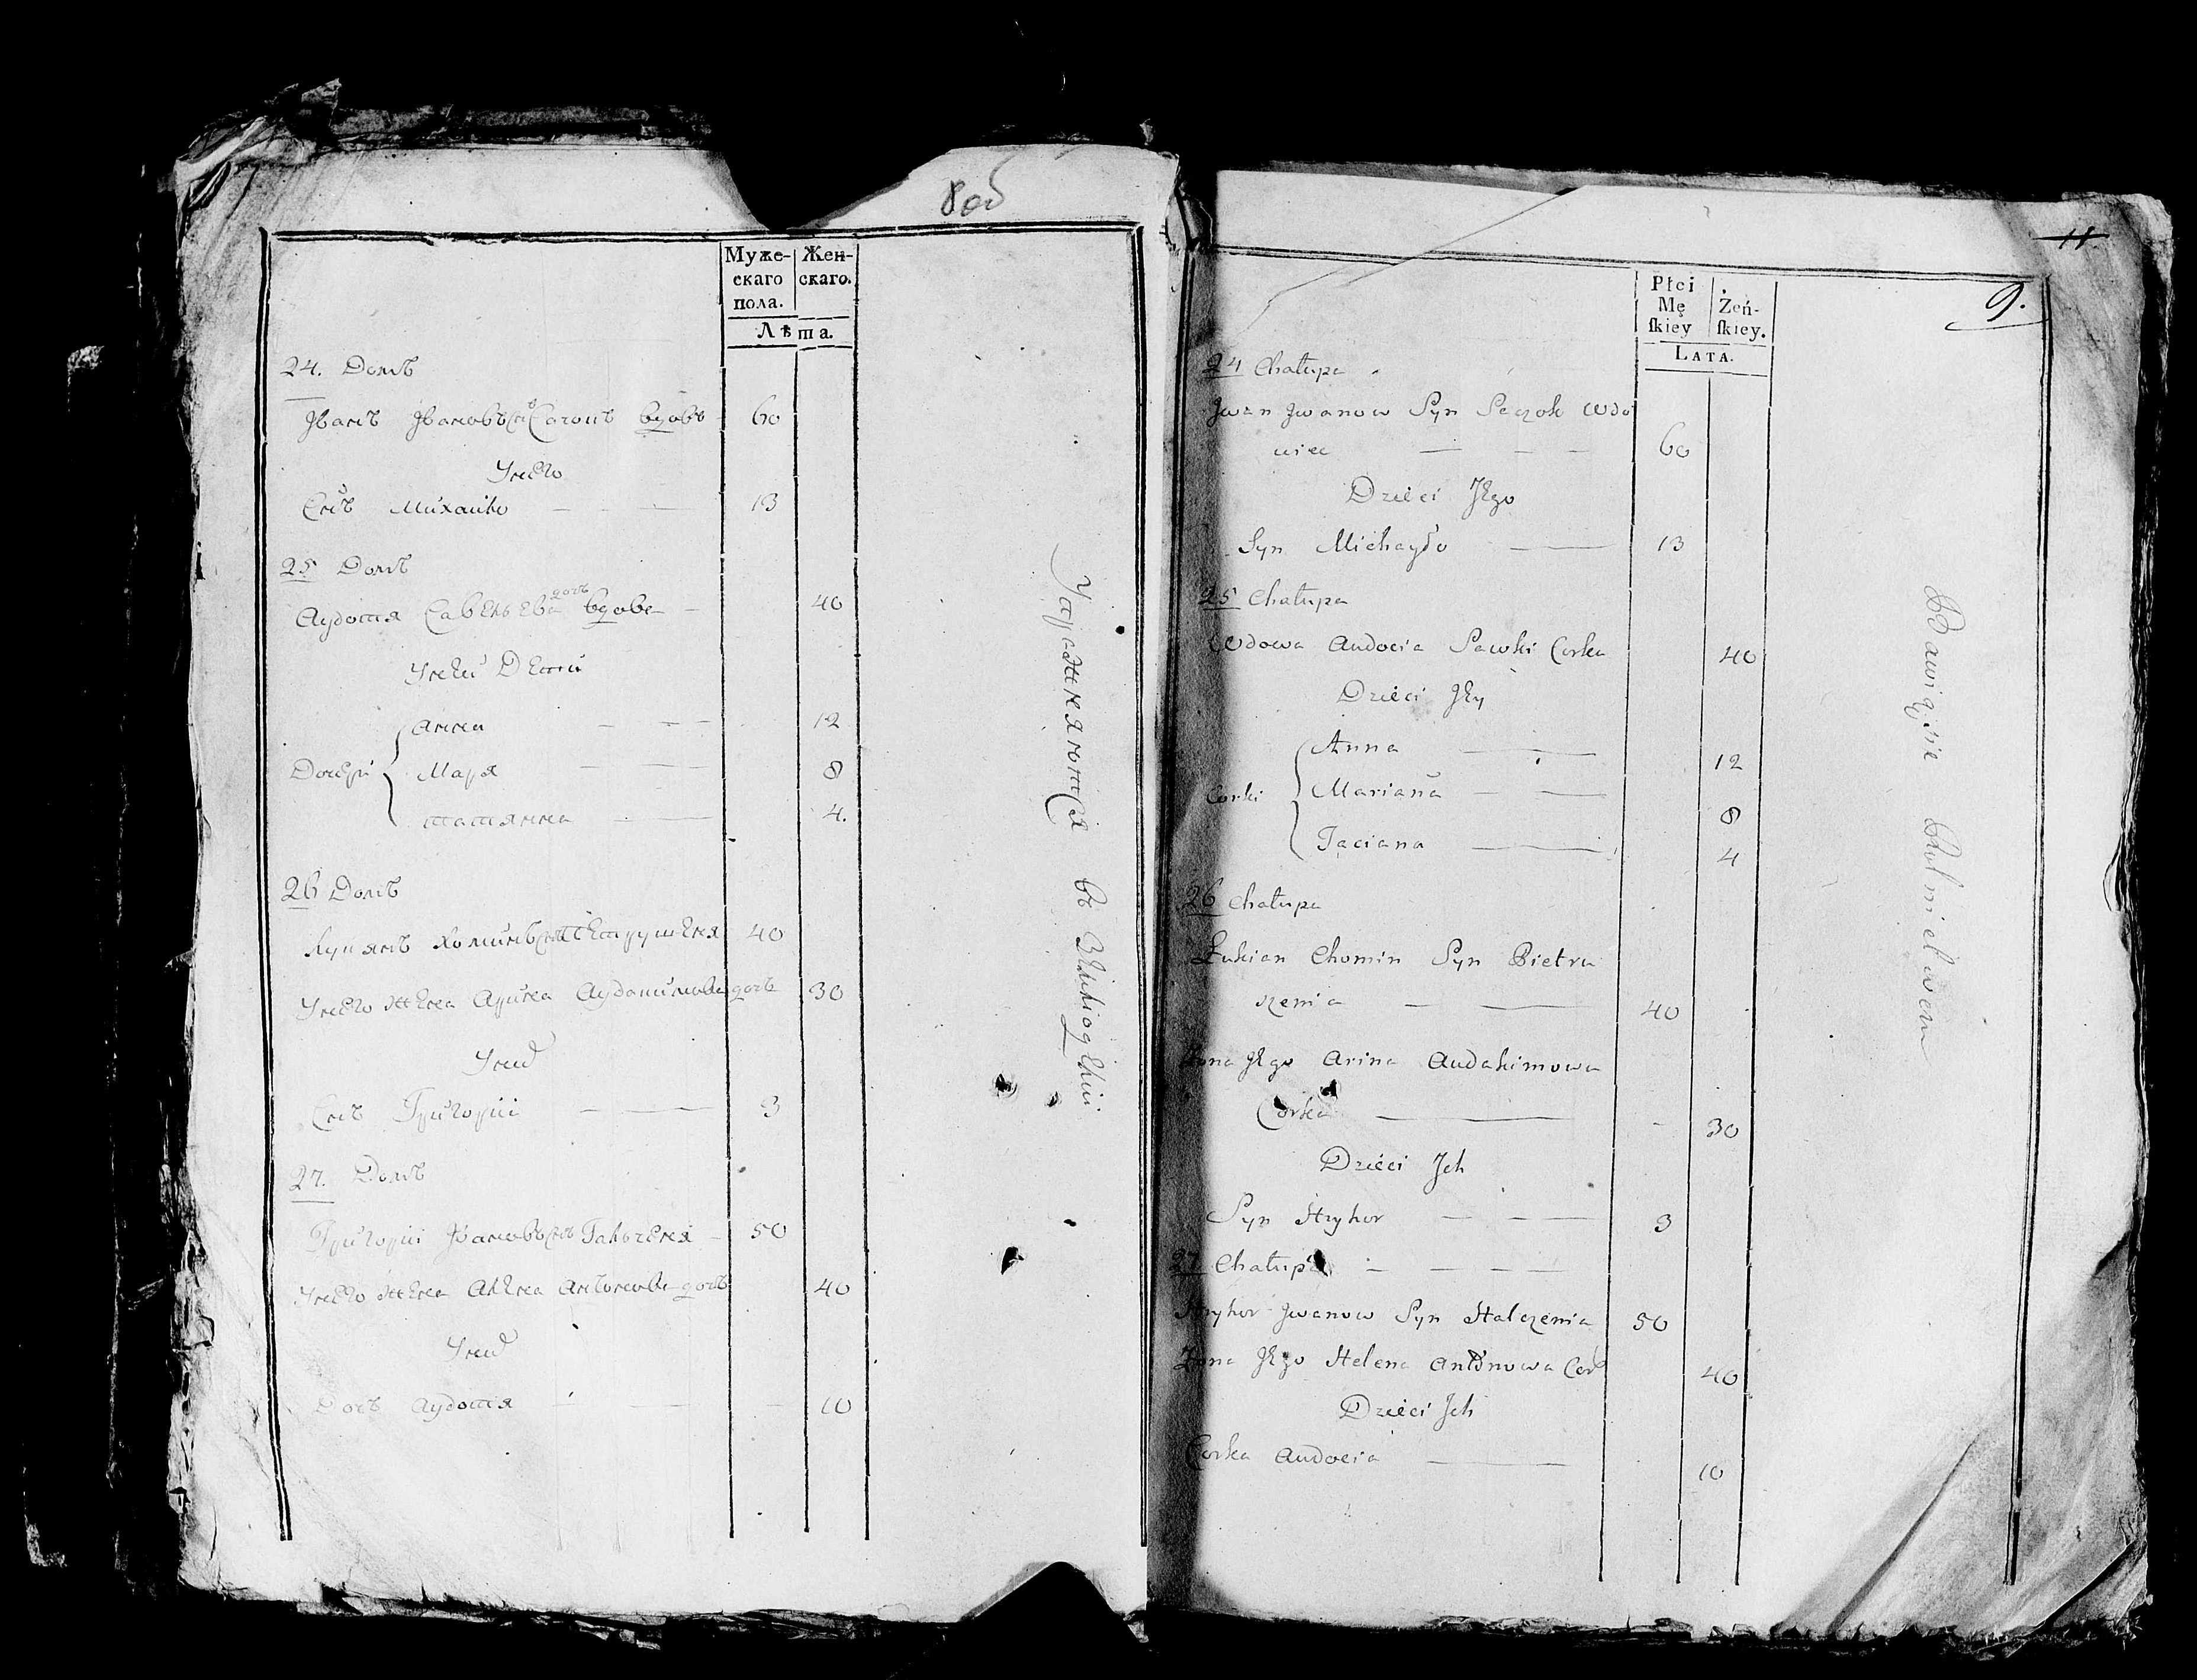 8 об
Муже-
скаго
пола.
Жен-
скаго.
Лѣта.
24. Домъ
Иванъ Ивановъ Снъ вдовъ 60
У него
Снъ Михайло — — — 13
25 Домъ
Аудотя Савельева дочь вдова — 40
У неи Дети
Анна — — — 12
Дочери Маря — — 8
Татянна — — 4.
26 Домъ
Лукянъ Хоминъ снъ Петрушеня 40
У него жена Арина Аудакимова дочь 30
У нихъ
Снъ Григории — — 3
27. Домъ
Григории Ивановъ снъ Гальченя — 50
У него жена Алена Антонова дочь 40
У нихъ
Дочь Аудотя — — — 10
Упражняются въ
11
9.
Płci
Mę
ſkiey
Żeń-
ſkiey.
LATA.
24 Chałupa
Jwan Jwanow Syn Saczok Wdo
wiec — — — 60
Dzieci Jego
Syn Michayło — — 13
25 Chałupa
Wdowa Audocia Sawki Corka 40
Dzieci Jey
Anna — — 12
Corki Marianа — — 8
Taciana — 4
26 Chałupa
Łukian Chomin Syn Pietru
szenia — — 40
Żona Jego Arina Audakimowa
Corka — 30
Dzieci Jch
Syn Hryhor — — — 3
27 Chałupa — — — —
Hryhor Jwanow Syn Halczenia 50
Żona Jego Helena Antonowa Cor 40
Dzieci Jch
Corka Audocia — 10
Bawią sie Rolnictwem